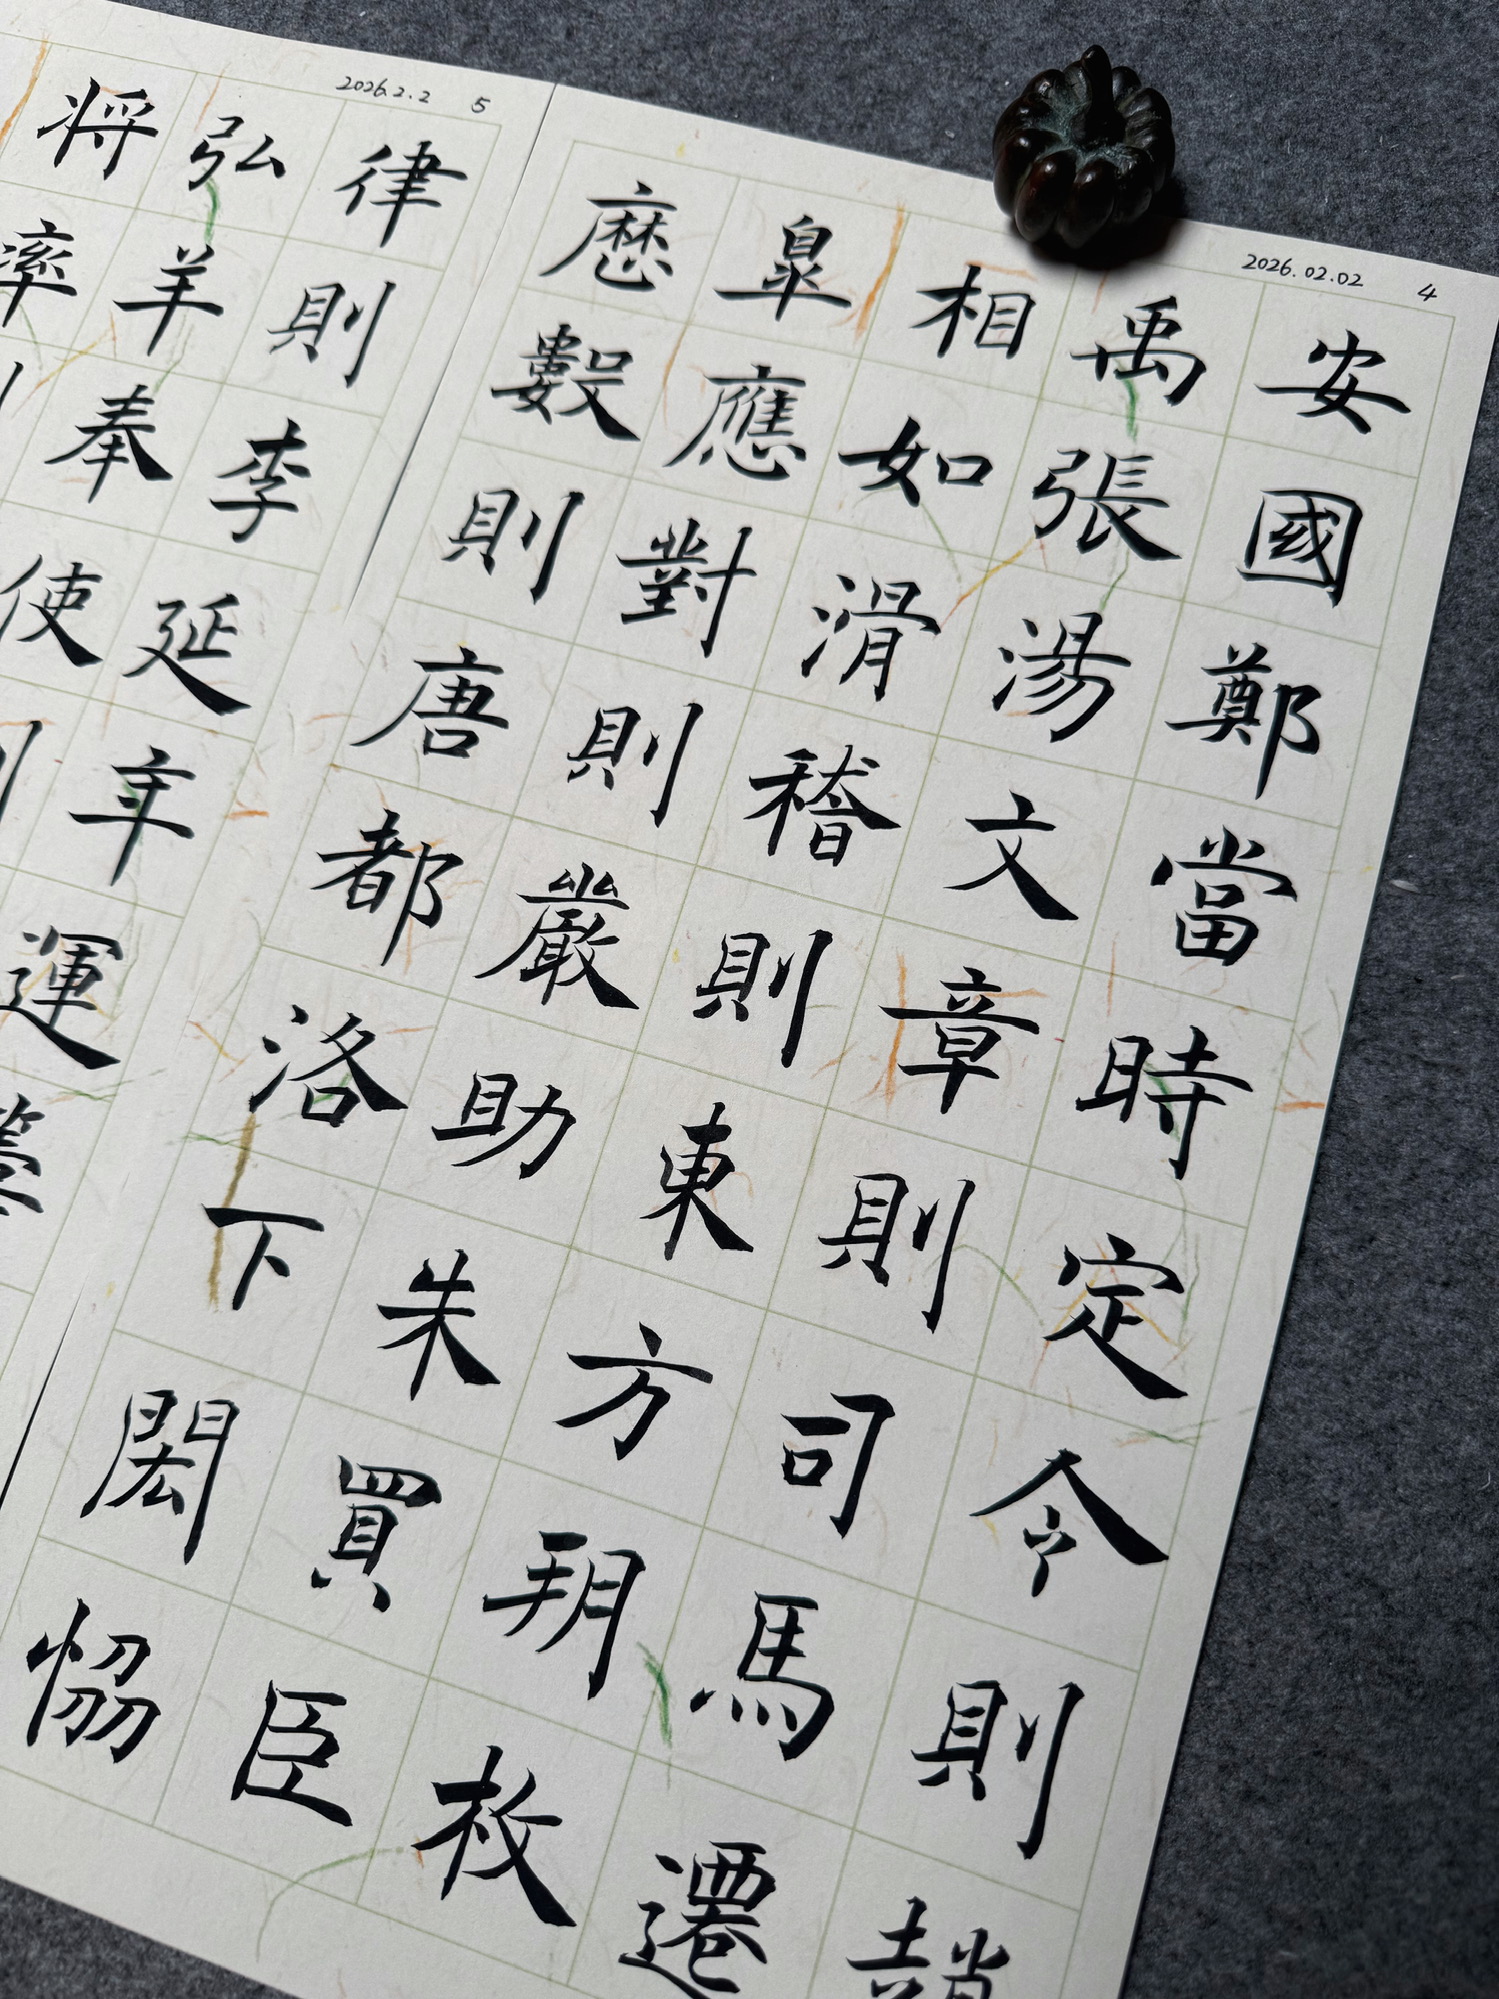 2026.02.02 4
安國鄭當時定令則趙
禹張湯文章則司馬遷
相如滑稽則東方朔枚
皐應對則嚴助朱買臣
歴數則唐都洛下閎恊
2026.2.2 5
律則李延年運籌
弘羊奉使
将率